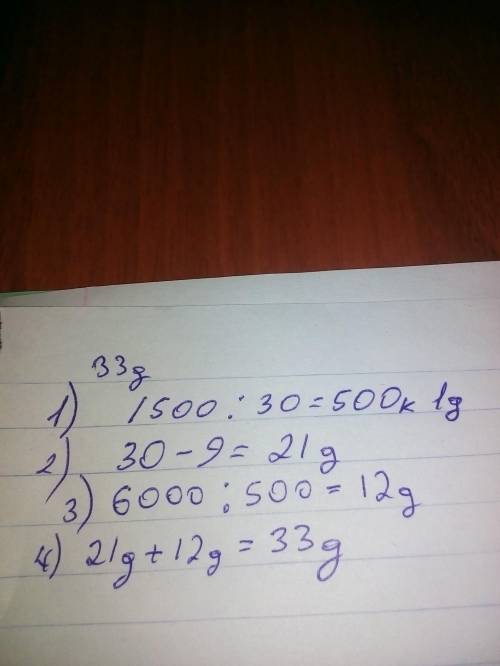 33g
1) 1500 : 30 = 500к 1g
2) 30 - 9 = 21g
3) 6000 : 500 = 12g
4) 21g + 12g = 33g